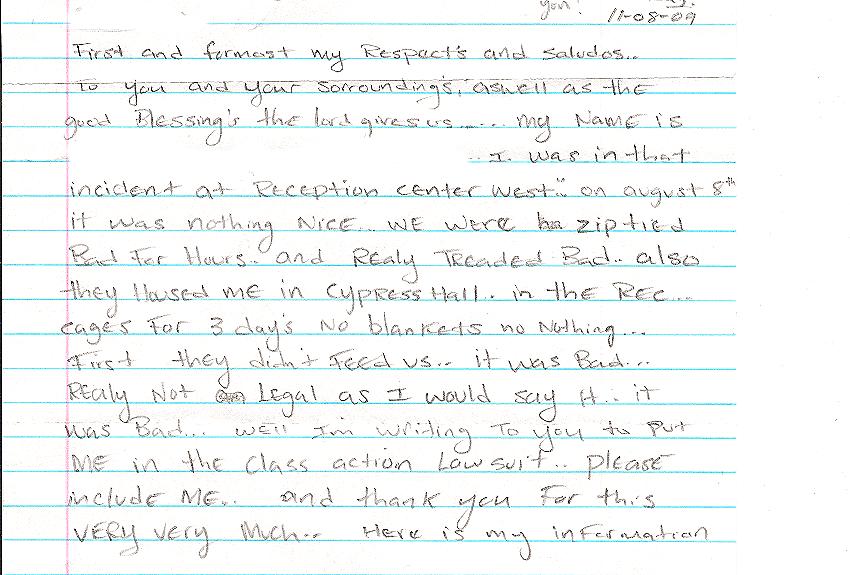 you!
11-08-09
First and formast my Respect's and saludos..
to you and your sorrounding's, aswell as the
good Blessing's the lord gives us...... my Name is
... I was in that
incident at Reception center west.. on august 8th
it was nothing NICE... WE WERE zip tied
Bad For Hours.. and REaly TREaded Bad.. also
they Housed ME in cypress Hall.. in the REC...
cages For 3 day's No blankets no Nothing...
First they didn't FEED us... it was Bad...
REaly Not LEgal as I would say it... it
was Bad... well I'm writing To you to put
ME in the class action Lawsuit.. plEasE
include ME.. and thank you For this
VERY very Much... HerE is my information